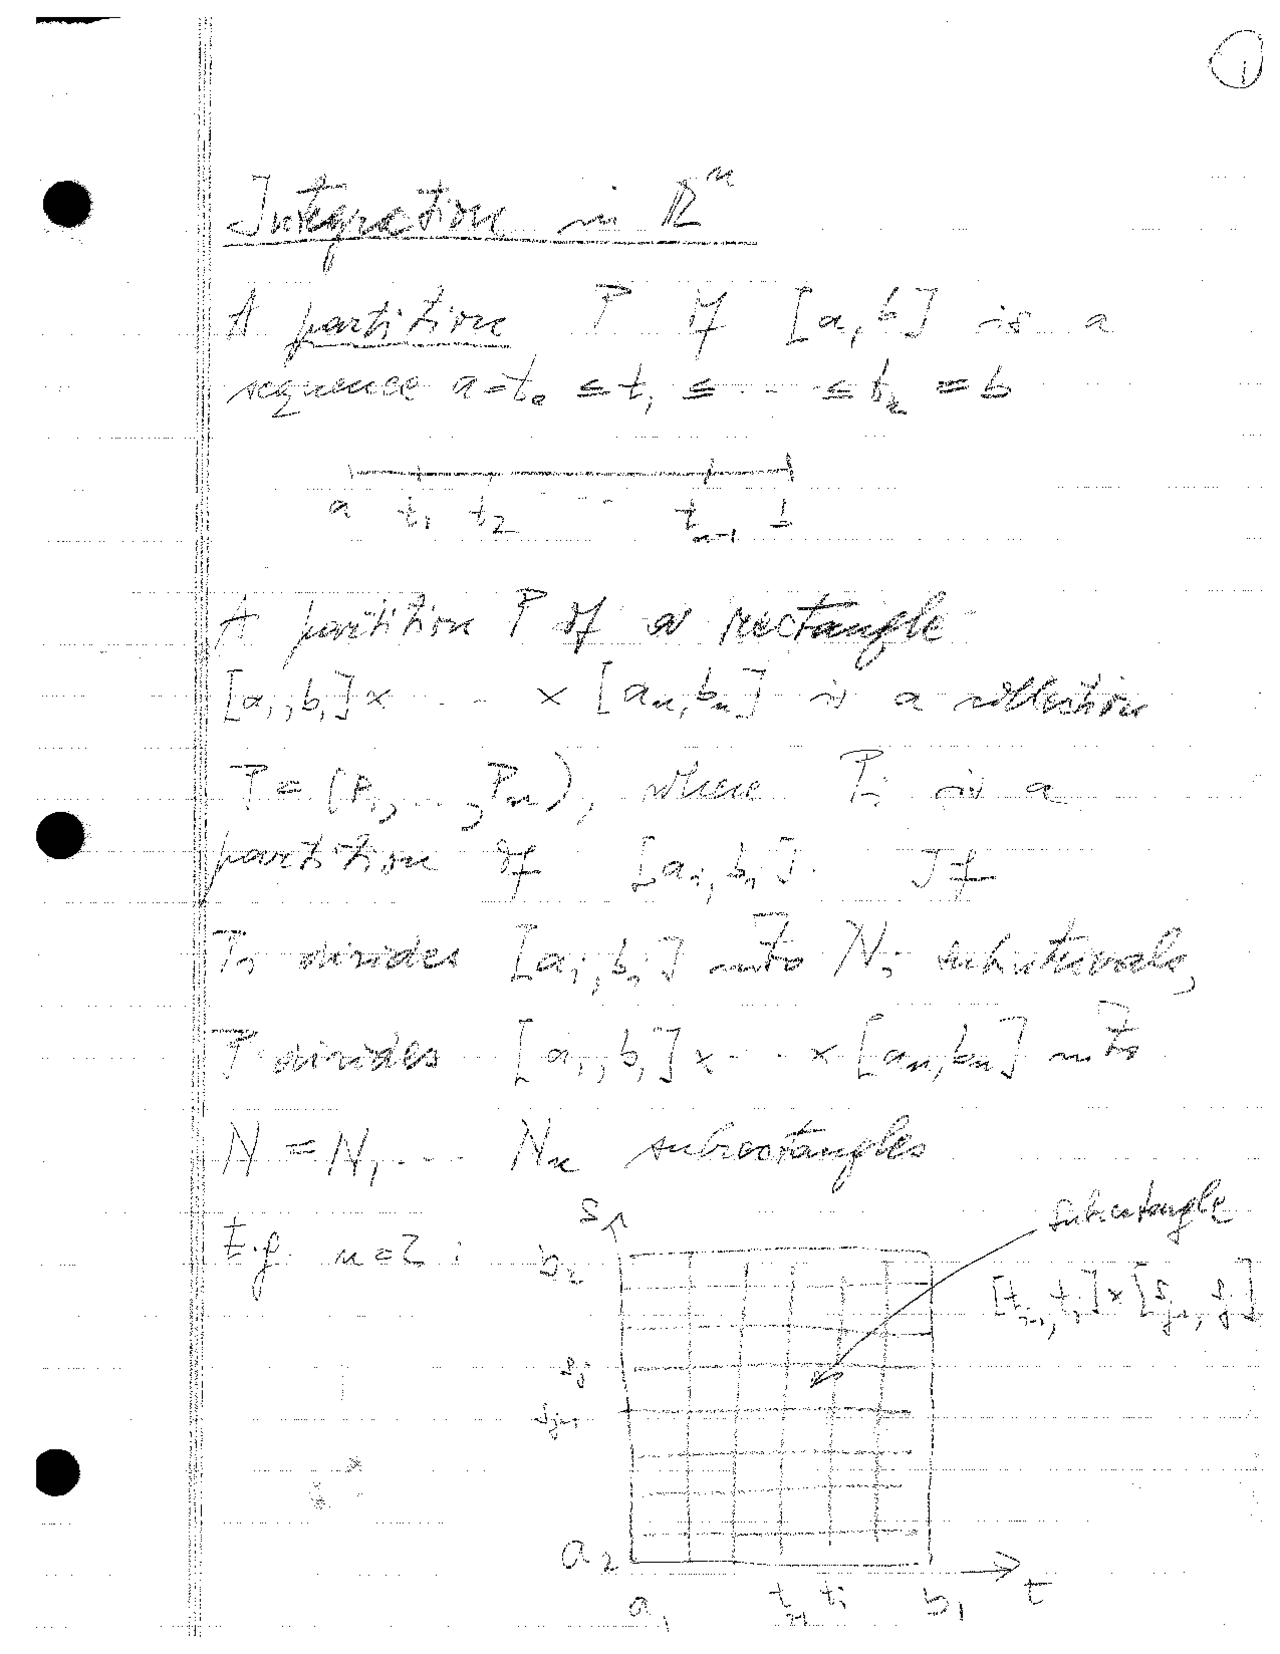 1
Integration in ℝⁿ
A partition P of [a, b] is a
sequence a = t₀ ≤ t₁ ≤ ··· ≤ t_k = b
a t₁ t₂ ··· t_{n-1} b
A partition P of a rectangle
[a₁, b₁] × ··· × [aₙ, bₙ] is a collection
P = (P₁, ..., Pₙ), where Pᵢ is a
partition of [aᵢ, bᵢ]. If
Pᵢ divides [aᵢ, bᵢ] into Nᵢ subintervals,
P divides [a₁, b₁] × ··· × [aₙ, bₙ] into
N = N₁ ··· Nₙ subrectangles
E.g. n = 2 :
s
subrectangle
b₂
[t_{i-1}, tᵢ] × [s_{j-1}, sⱼ]
sⱼ
s_{j-1}
a₂
a₁ t_{i-1} tᵢ b₁ t